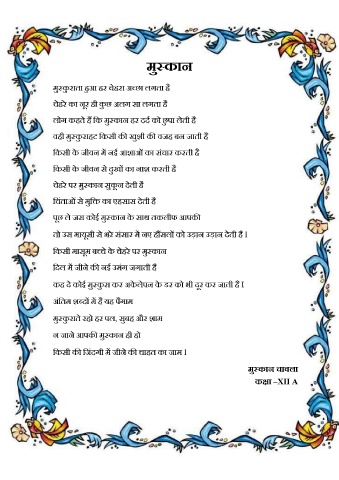 मुस्कान
मुस्कुराता हुआ हर चेहरा अच्छा लगता है
चेहरे का नूर ही कुछ अलग सा लगता है
लोग कहते हैं कि मुस्कान हर दर्द को छुपा लेती है
वही मुस्कुराहट किसी की खुशी की वजह बन जाती है
किसी के जीवन में नई आशाओं का संचार करती है
किसी के जीवन से दुखों का नाश करती है
चेहरे पर मुस्कान सुकून देती है
चिंताओं से मुक्ति का एहसास देती है
पूछ ले जरा कोई मुस्कान के साथ तकलीफ आपकी
तो उस मायूसी से भरे संसार में नए हौंसलों को उड़ान उड़ान देती है I
किसी मासूम बच्चे के चेहरे पर मुस्कान
दिल में जीने की नई उमंग जगाती है
कह दे कोई मुस्कुरा कर अकेलेपन के डर को भी दूर कर जाती है I
अंतिम शब्दों में है यह पैगाम
मुस्कुराते रहो हर पल, सुबह और शाम
न जाने आपकी मुस्कान ही हो
किसी की जिंदगी में जीने की चाहत का जाम I
मुस्कान चावला
कक्षा –XII A